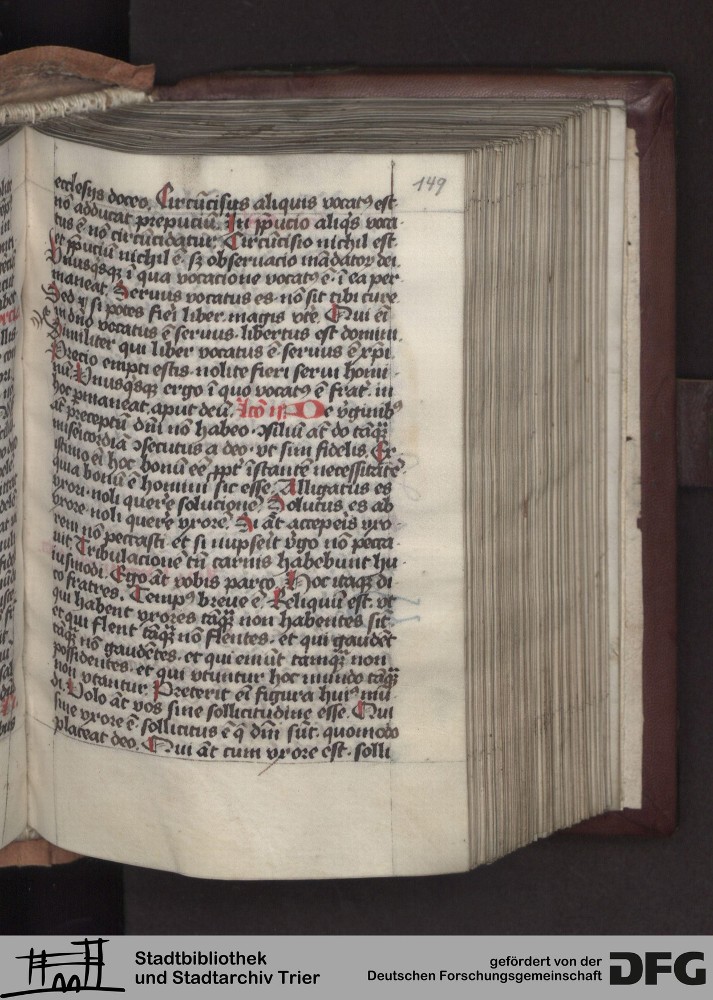 149
ecclesijs doceo. Circūcisus aliquis vocatꝰ est
nō adducat prepuciū. In p̄pucio aliqͥs voca
tus ē nō circūcidatur. Circūcisio nichil est
et p̄puciū nichil ē. sꝫ observacio mādatoꝝ dei.
Vnusqͥsqꝫ ī qua vocacione vocatꝰ ē. ī ea per
maneat. Servus vocatus es. nō sit tibi cure
Sed et si potes fieri liber. magis vte. Qui eī
in dn̄o vocatus ē seruus. libertus est domini.
Similiter qui liber vocatus ē seruus ē xp̄i
Precio empti estis. nolite fieri serui homi
nū. Vnusqͥsqꝫ ergo ī quo vocatꝰ ē frat̄. in
hoc pmaneat aput deū. De v̄ginibꝰ
at̄ preceptū dn̄i nō habeo. ꝯsiliū at̄ do tāqꝫ
misericordiā ꝯsecutus a deo. vt sim fidelis. Ex
istimo eī hoc bonū eē ppt̄ īstantē necessitatē
quia bonū ē homini sic esse. Alligatus es
vxori. noli querē solucionē. Solutus es ab
vxore. noli querē vxorē. Si at̄ acceperis vxo
rem nō peccasti et si nupserit v̄go nō pecca
uit Tribulacionē tn̄ carnis habebunt hu
iusmodi. Ego at̄ vobis parco. Hoc itaqꝫ di
co fratres. Tempꝰ breue ē. Reliquū est. vt
qui habent vxores tāqꝫ non habentes sīt.
et qui flent tāqꝫ nō flentes. et qui gaudēt
tāqꝫ nō gaudētes. et qui emūt tamqꝫ non
possidentes. et qui vtuntur hoc mundo tāqꝫ
non vtantur. Preterit eī figura huiꝰ mū
di. Volo at̄ vos sine sollicitudine esse. Qui
sine vxore ē. sollicitus ē q̄ dn̄i sūt. quomodo
placeat deo. Qui at̄ cum vxore est. solli
Stadtbibliothek
und Stadtarchiv Trier
gefördert von der
Deutschen Forschungsgemeinschaft
DFG